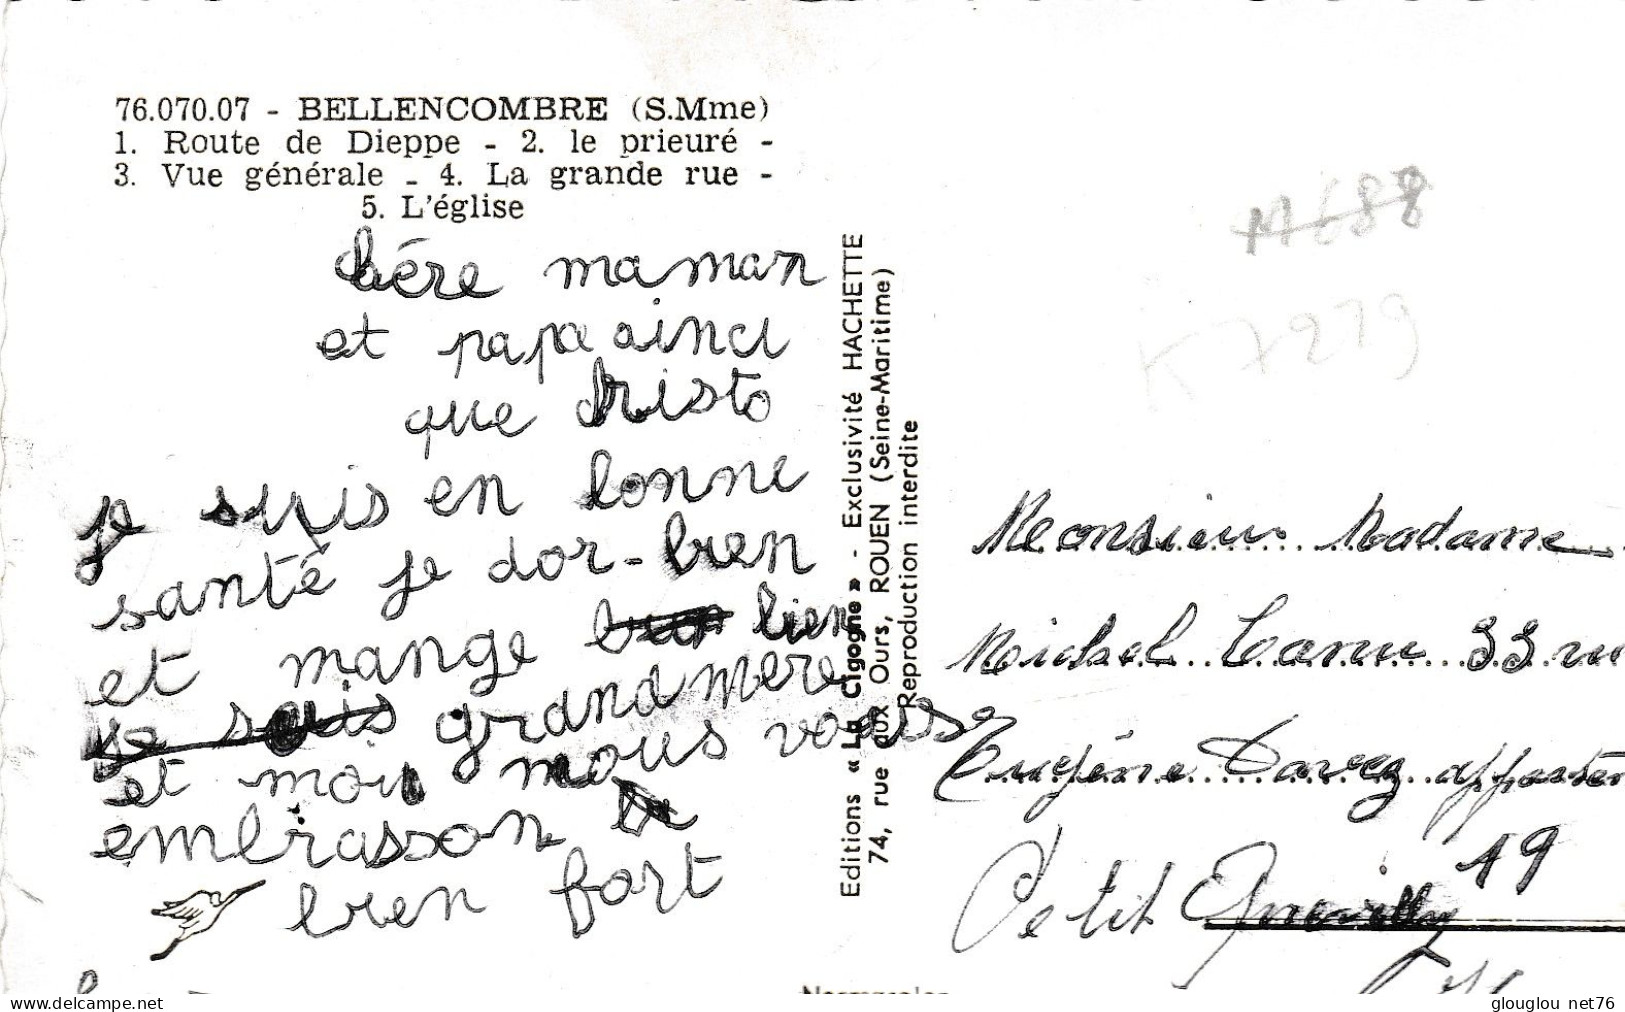 76.070.07 - BELLENCOMBRE (S.Mme)
1. Route de Dieppe - 2. le prieuré -
3. Vue générale - 4. La grande rue -
5. L'église
chére maman
et papa ainci
que christo
je suis en bonne
santé je dor-bien
et mange bien
je suis grand mere
et moi nous vous
embrasson
bien fort
Editions « La Cigogne » - Exclusivité HACHETTE
74, rue aux Ours, ROUEN (Seine-Maritime)
Reproduction interdite
M688
K7219
Monsieur Madame
Michel Canu 33 rue
Eugène Davey apparte
19
Petit Quevilly
glouglou net76